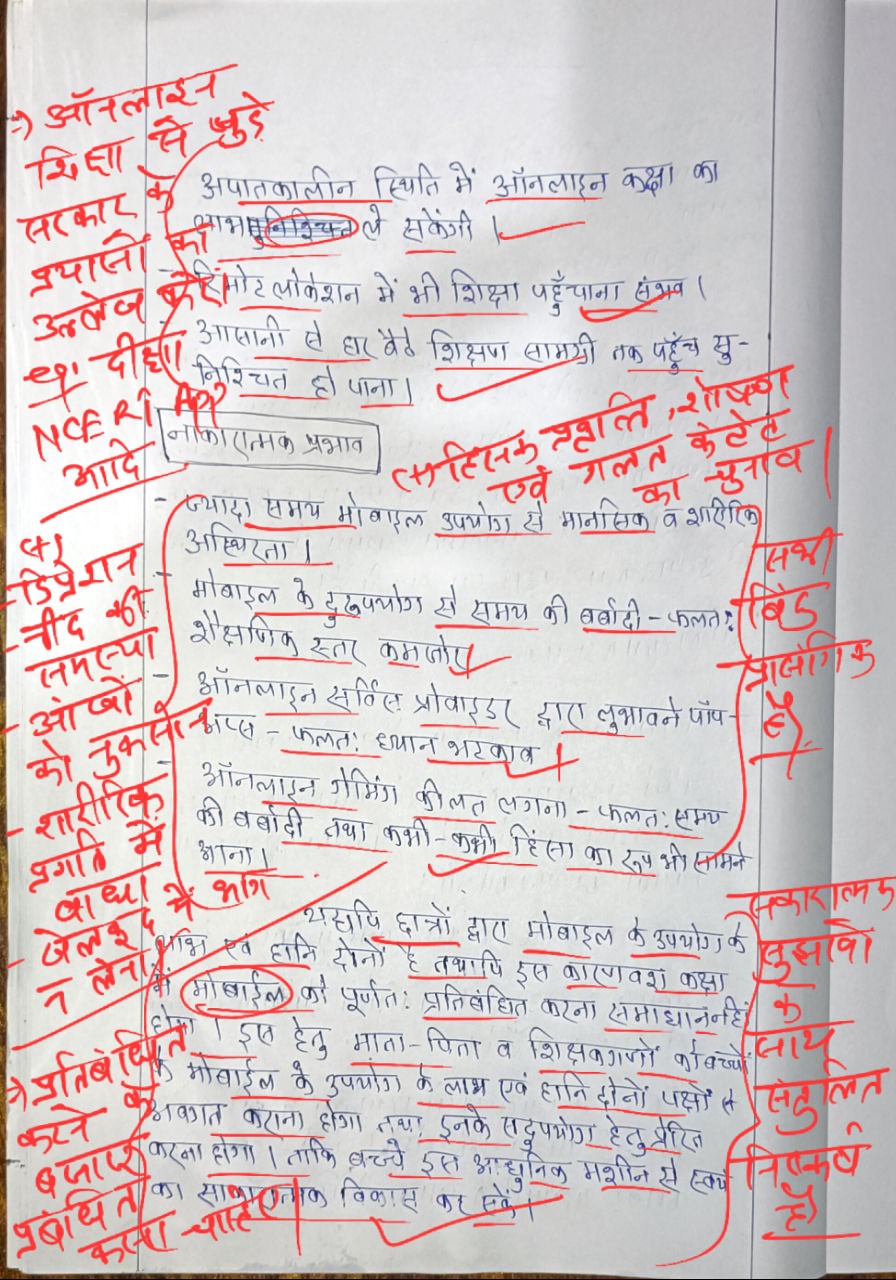 → ऑनलाइन
शिक्षा से जुड़े
सरकार के
प्रयासों का
उल्लेख करें।
दीक्षा
NCERT App
आदि
अपातकालीन स्थिति में ऑनलाइन कक्षा का
लाभ सुनिश्चित ले सकेंगी।
- रिमोट लोकेशन में भी शिक्षा पहुँचाना संभव।
- आसानी से घर बैठे शिक्षण सामग्री तक पहुँच सु-
निश्चित हो पाना।
नाकारात्मक प्रभाव
हिंसक प्रवृत्ति, शोषण
एवं गलत कंटेंट
का चुनाव।
- ज्यादा समय मोबाइल उपयोग से मानसिक व शारीरिक
अस्थिरता।
- मोबाइल के दुरुपयोग से समय की बर्बादी - फलत:
शैक्षणिक स्तर कमजोर
- ऑनलाइन सर्विस प्रोवाइडर द्वारा लुभावने पॉप-
अप्स - फलत: ध्यान भटकाव।
- ऑनलाइन गेमिंग की लत लगना - फलत: समय
की बर्बादी तथा कभी-कभी हिंसा का रूप भी सामने
आना।
- डिप्रेशन
- नींद की
समस्या
- आंखों
को नुकसान
- शारीरिक
प्रगति में
बाधा।
- खेलकूद में भाग
न लेना।
सभी
बिंदु
प्रासंगिक
है।
यद्यपि छात्रों द्वारा मोबाइल के उपयोग के
लाभ एवं हानि दोनों है तथापि इस कारणवश कक्षा
में मोबाईल को पूर्णत: प्रतिबंधित करना समाधान नहिं
होगा। इस हेतु माता-पिता व शिक्षकगणों को बच्चों
के मोबाईल के उपयोग के लाभ एवं हानि दोनों पक्षों से
अवगत कराना होगा तथा इनके सदुपयोग हेतु प्रेरित
करना होगा। ताकि बच्चे इस आधुनिक मशीन से स्वयं
का साकारात्मक विकास कर सकें।
→ प्रतिबंधित
करने के
बजाए
प्रबंधित
करना चाहिए
सकारात्मक
सुझावों
के
साथ
संतुलित
निष्कर्ष
है।